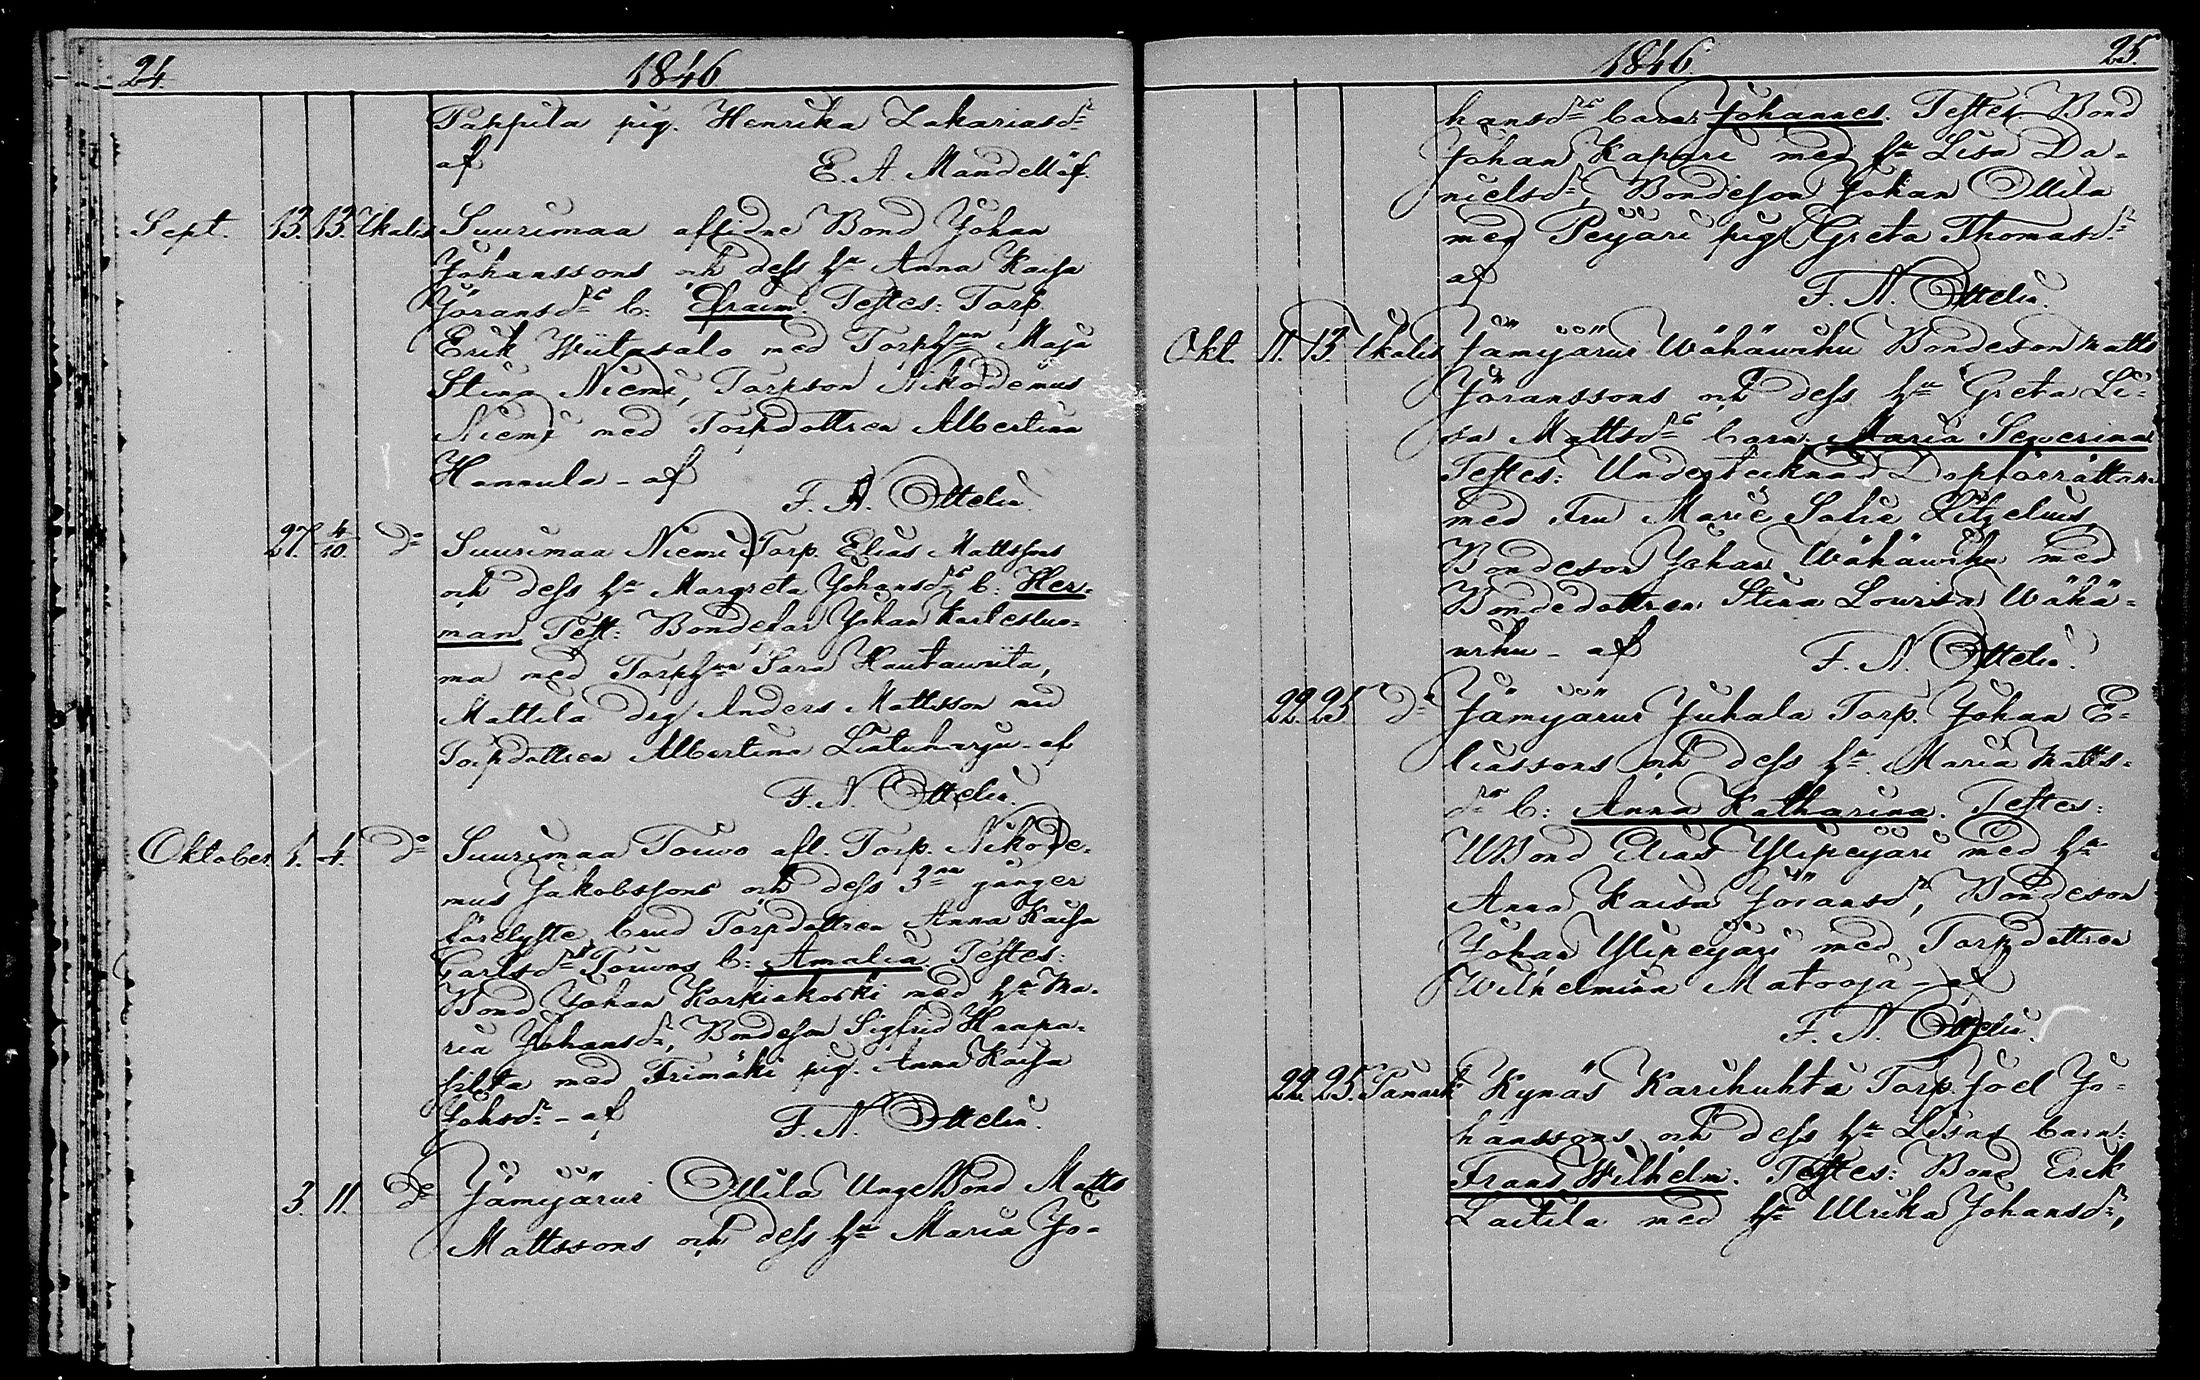 24. 1846.
Pappila pig. Henrika Zakariasdr
af E. A. Mandellöf.
Sept. 13. 13. Ikalis Suurimaa aflidne Bond Johan
Johanssons och dess hu Anna Kaisa
Jöransdrs b: Efraim. Testes: Torp.
Erik Wiitasalo med Torphun Maja
Stina Niemi, Torpson Nikodemus
Niemi med Torpdottren Albertina
Hannula - af F. N. Ottelin.
27. 4/10 Do Suurimaa Niemi Torp. Elias Mattssons
och dess hu Margreta Johansdrs b: Her-
man. Test: Bondefar Johan Karlesluo-
ma med Torphun Sara Hautawiita,
Mattila drg Anders Mattsson med
Torpdottren Albertina Lintuharju - af
F. N. Ottelin.
Oktober 1. 4. Do Suurimaa Touwo afl. Torp. Nikode-
mus Jakobssons och dess 3ne gånger
förelyste brud Torpdottren Anna Kaisa
Carlsdrs Touwos b: Amalia. Testes:
Bond Johan Korkiakoski med hu Ma-
ria Johansdr, Bondeson Sigfrid Haapa-
silta med Frimäki pig. Anna Kaisa
Johsdr - af F. N. Ottelin.
3. 11. Do Jämijärwi Ollila Unge Bond Matts
Mattssons och dess hu Maria Jo-
1846. 25.
hansdrs barn Johannes. Testes Bond
Johan Kapari med hu Lisa Da-
nielsdr, Bondeson Johan Ollila
med Peijari pig. Greta Thomasdr
af F. N. Ottelin.
Okt. 11. 13 Ikalis Jämijärwi Wähäuhu Bondeson Matts
Jöranssons och dess hu Greta Li-
sa Mattsdrs barn: Maria Sewerina
Testes: Undertecknad Dopförrättare
med Fru Marie Sofie Litzelius,
Bondeson Johan Wähäuhu med
Bondedottren Stina Lowisa Wähä-
urhu - af F. N. Ottelin.
22. 25 Do Jämijärwi Juhala Torp. Johan E-
liassons och dess hu Maria Matts-
drs b: Anna Katharina. Testes:
UBond Elias Ylipeijari med hu
Anna Kaisa Jöransdr, Bondeson
Johan Ylipeijari med Torpdottren
Wilhelmina Matooja - af
F. N. Ottelin.
22. 25. Kynäs Karihuhta Torp. Joel Jo-
hanssons och dess hu Lisas barn:
Frans Wilhelm. Testes: Bond Erik
Laitila med hu Ulrika Johansdr,